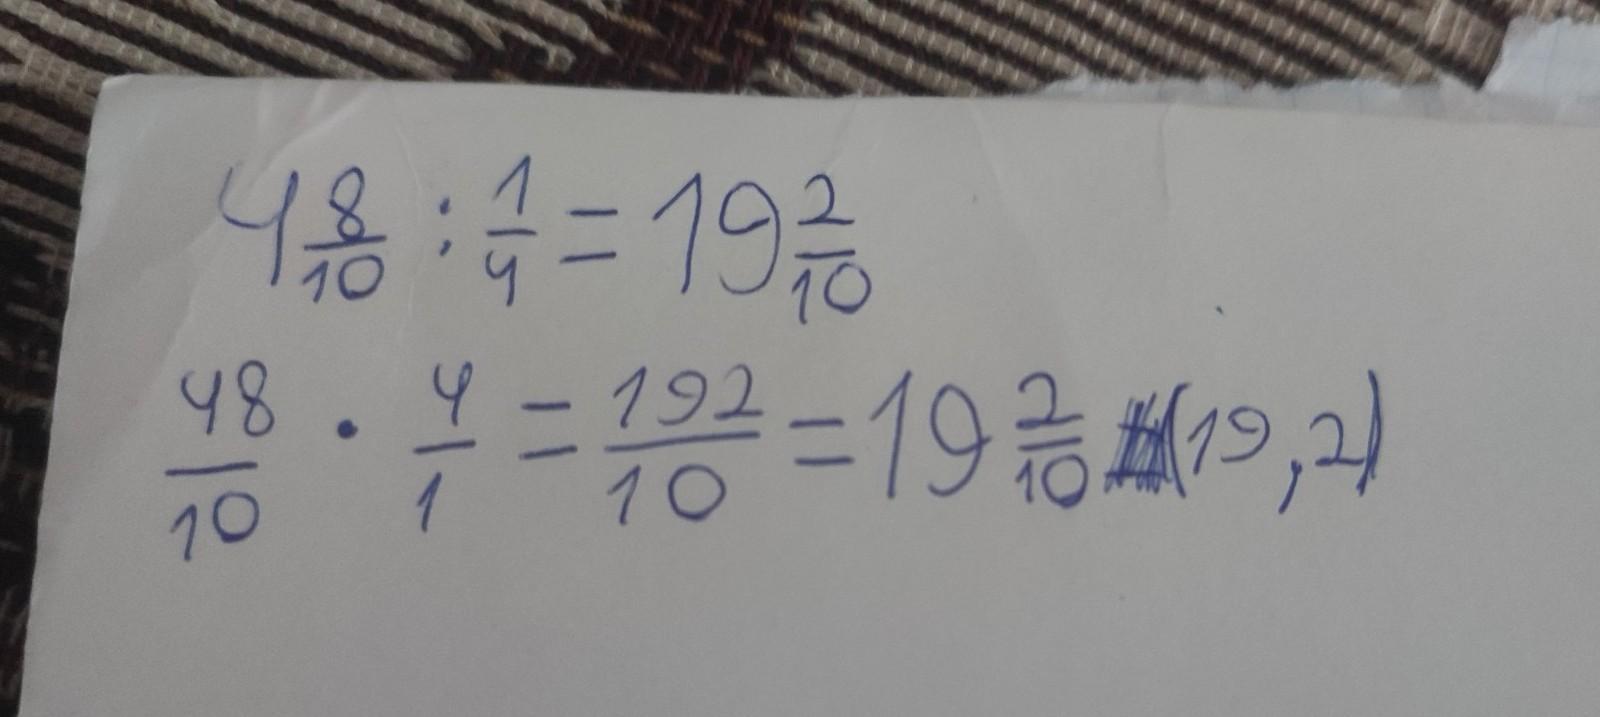 4 8/10 : 1/4 = 19 2/10
48/10 · 4/1 = 192/10 = 19 2/10 (19,2)